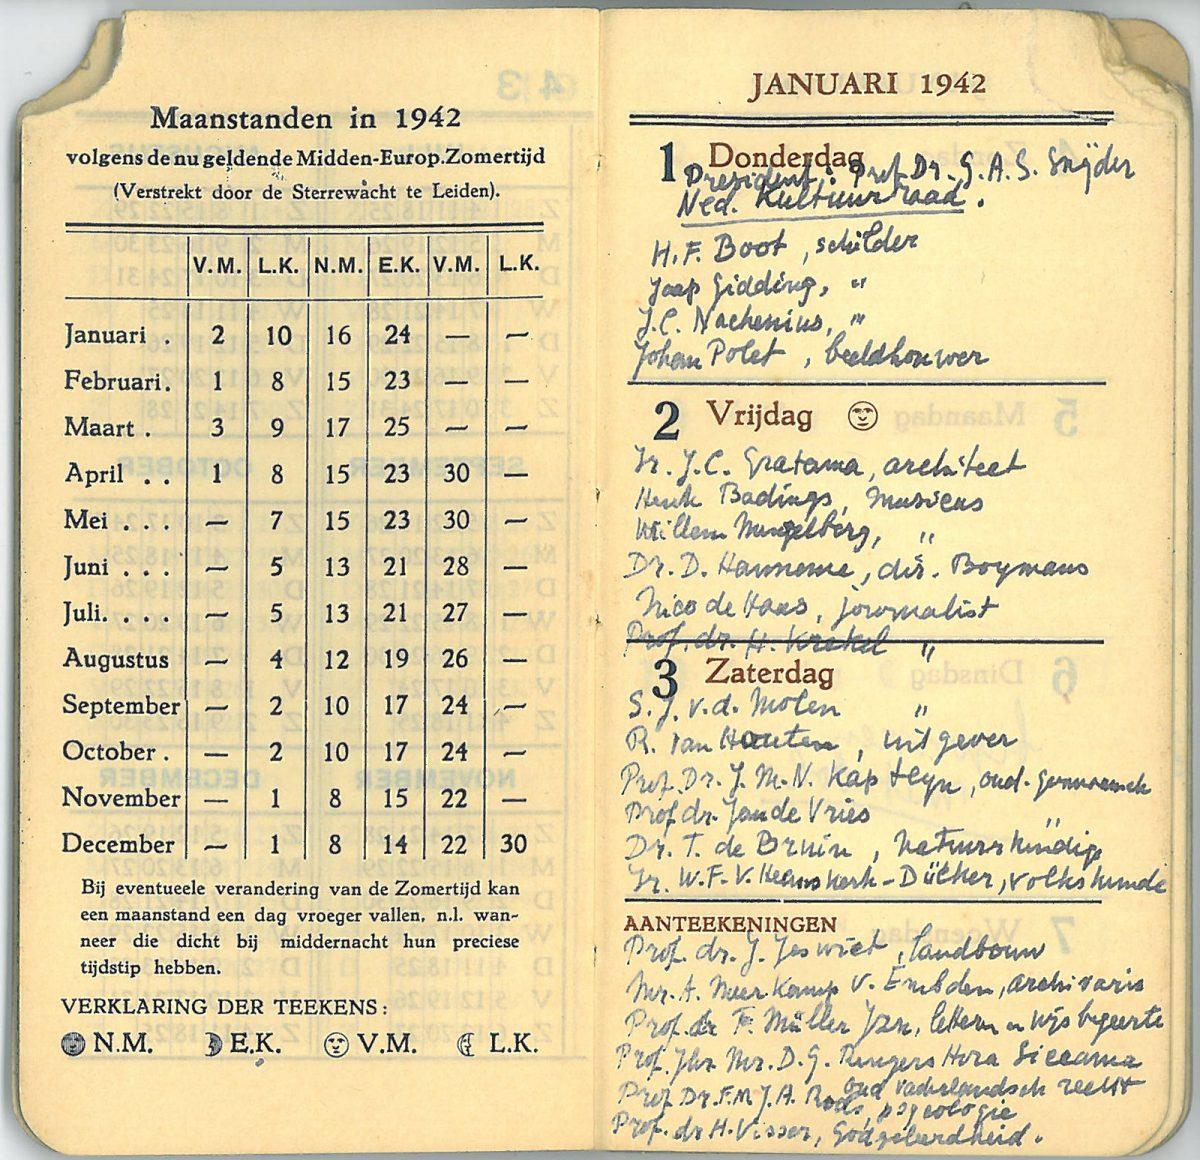 Maanstanden in 1942
volgens de nu geldende Midden-Europ. Zomertijd
(Verstrekt door de Sterrewacht te Leiden).
V.M. L.K. N.M. E.K. V.M. L.K.
Januari . 2 10 16 24 — —
Februari. 1 8 15 23 — —
Maart . 3 9 17 25 — —
April . . 1 8 15 23 30 —
Mei . . . — 7 15 23 30 —
Juni . . . — 5 13 21 28 —
Juli. . . . — 5 13 21 27 —
Augustus — 4 12 19 26 —
September — 2 10 17 24 —
October . — 2 10 17 24 —
November — 1 8 15 22 —
December — 1 8 14 22 30
Bij eventueele verandering van de Zomertijd kan
een maanstand een dag vroeger vallen, n.l. wan-
neer die dicht bij middernacht hun preciese
tijdstip hebben.
VERKLARING DER TEEKENS:
N.M. E.K. V.M. L.K.
JANUARI 1942
1 Donderdag
President: Prof. Dr. G.A.S. Snÿder
Ned. Kultuurraad.
H.F. Boot, schilder
Jaap Gidding, "
J.C. Nachenius, "
Johan Polet, beeldhouwer
2 Vrijdag
Ir. J.C. Gratama, architect
Henk Badings, musicus
Willem Mengelberg, "
Dr. D. Hannema, dir. Boymans
Nico de Haas, journalist
Prof. dr. H. Krekel "
3 Zaterdag
S.J. v.d. Molen "
R. van Houten, uitgever
Prof. Dr. J.M.N. Kapteyn, oud-germaansch
Prof dr. Jan de Vries
Dr. T. de Bruin, natuurkündige
Ir. W.F.V. Heemskerk-Dücker, volkskunde
AANTEEKENINGEN
Prof. dr. J. Jeswiet, landbouw
Mr. A. Meerkamp v. Embden, archivaris
Prof. dr F. Müller Jzn, letteren en wijsbegeerte
Prof. Jhr. Mr. D.G. Rengers Hora Siccama
oud vaderlandsch recht
Prof Dr. F.M.J.A. Roels, psychologie
Prof. dr H. Visser, Godgeleerdheid.